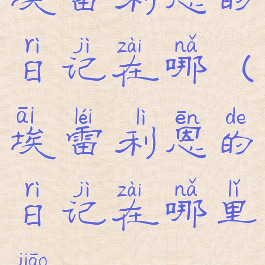 埃雷利恩的
rì jì zài nǎ
日记在哪（
āi léi lì ēn de
埃雷利恩的
rì jì zài nǎ lǐ
日记在哪里
jiāo